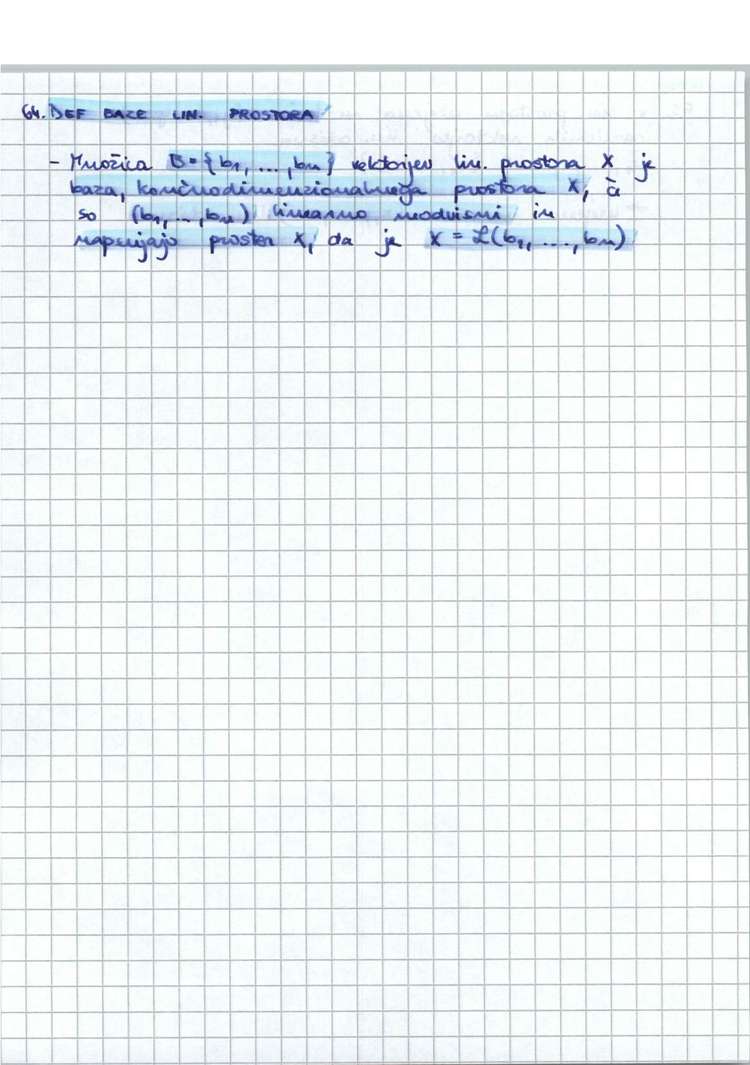 64. DEF BAZE LIN. PROSTORA
- Množica B = {b1, ..., bn} vektorjev lin. prostora X je
baza, končnodimenzionalnega prostora X, če
so (b1, ..., bn) linearno neodvisni in
napenjajo prostor X, da je X = L(b1, ..., bn)